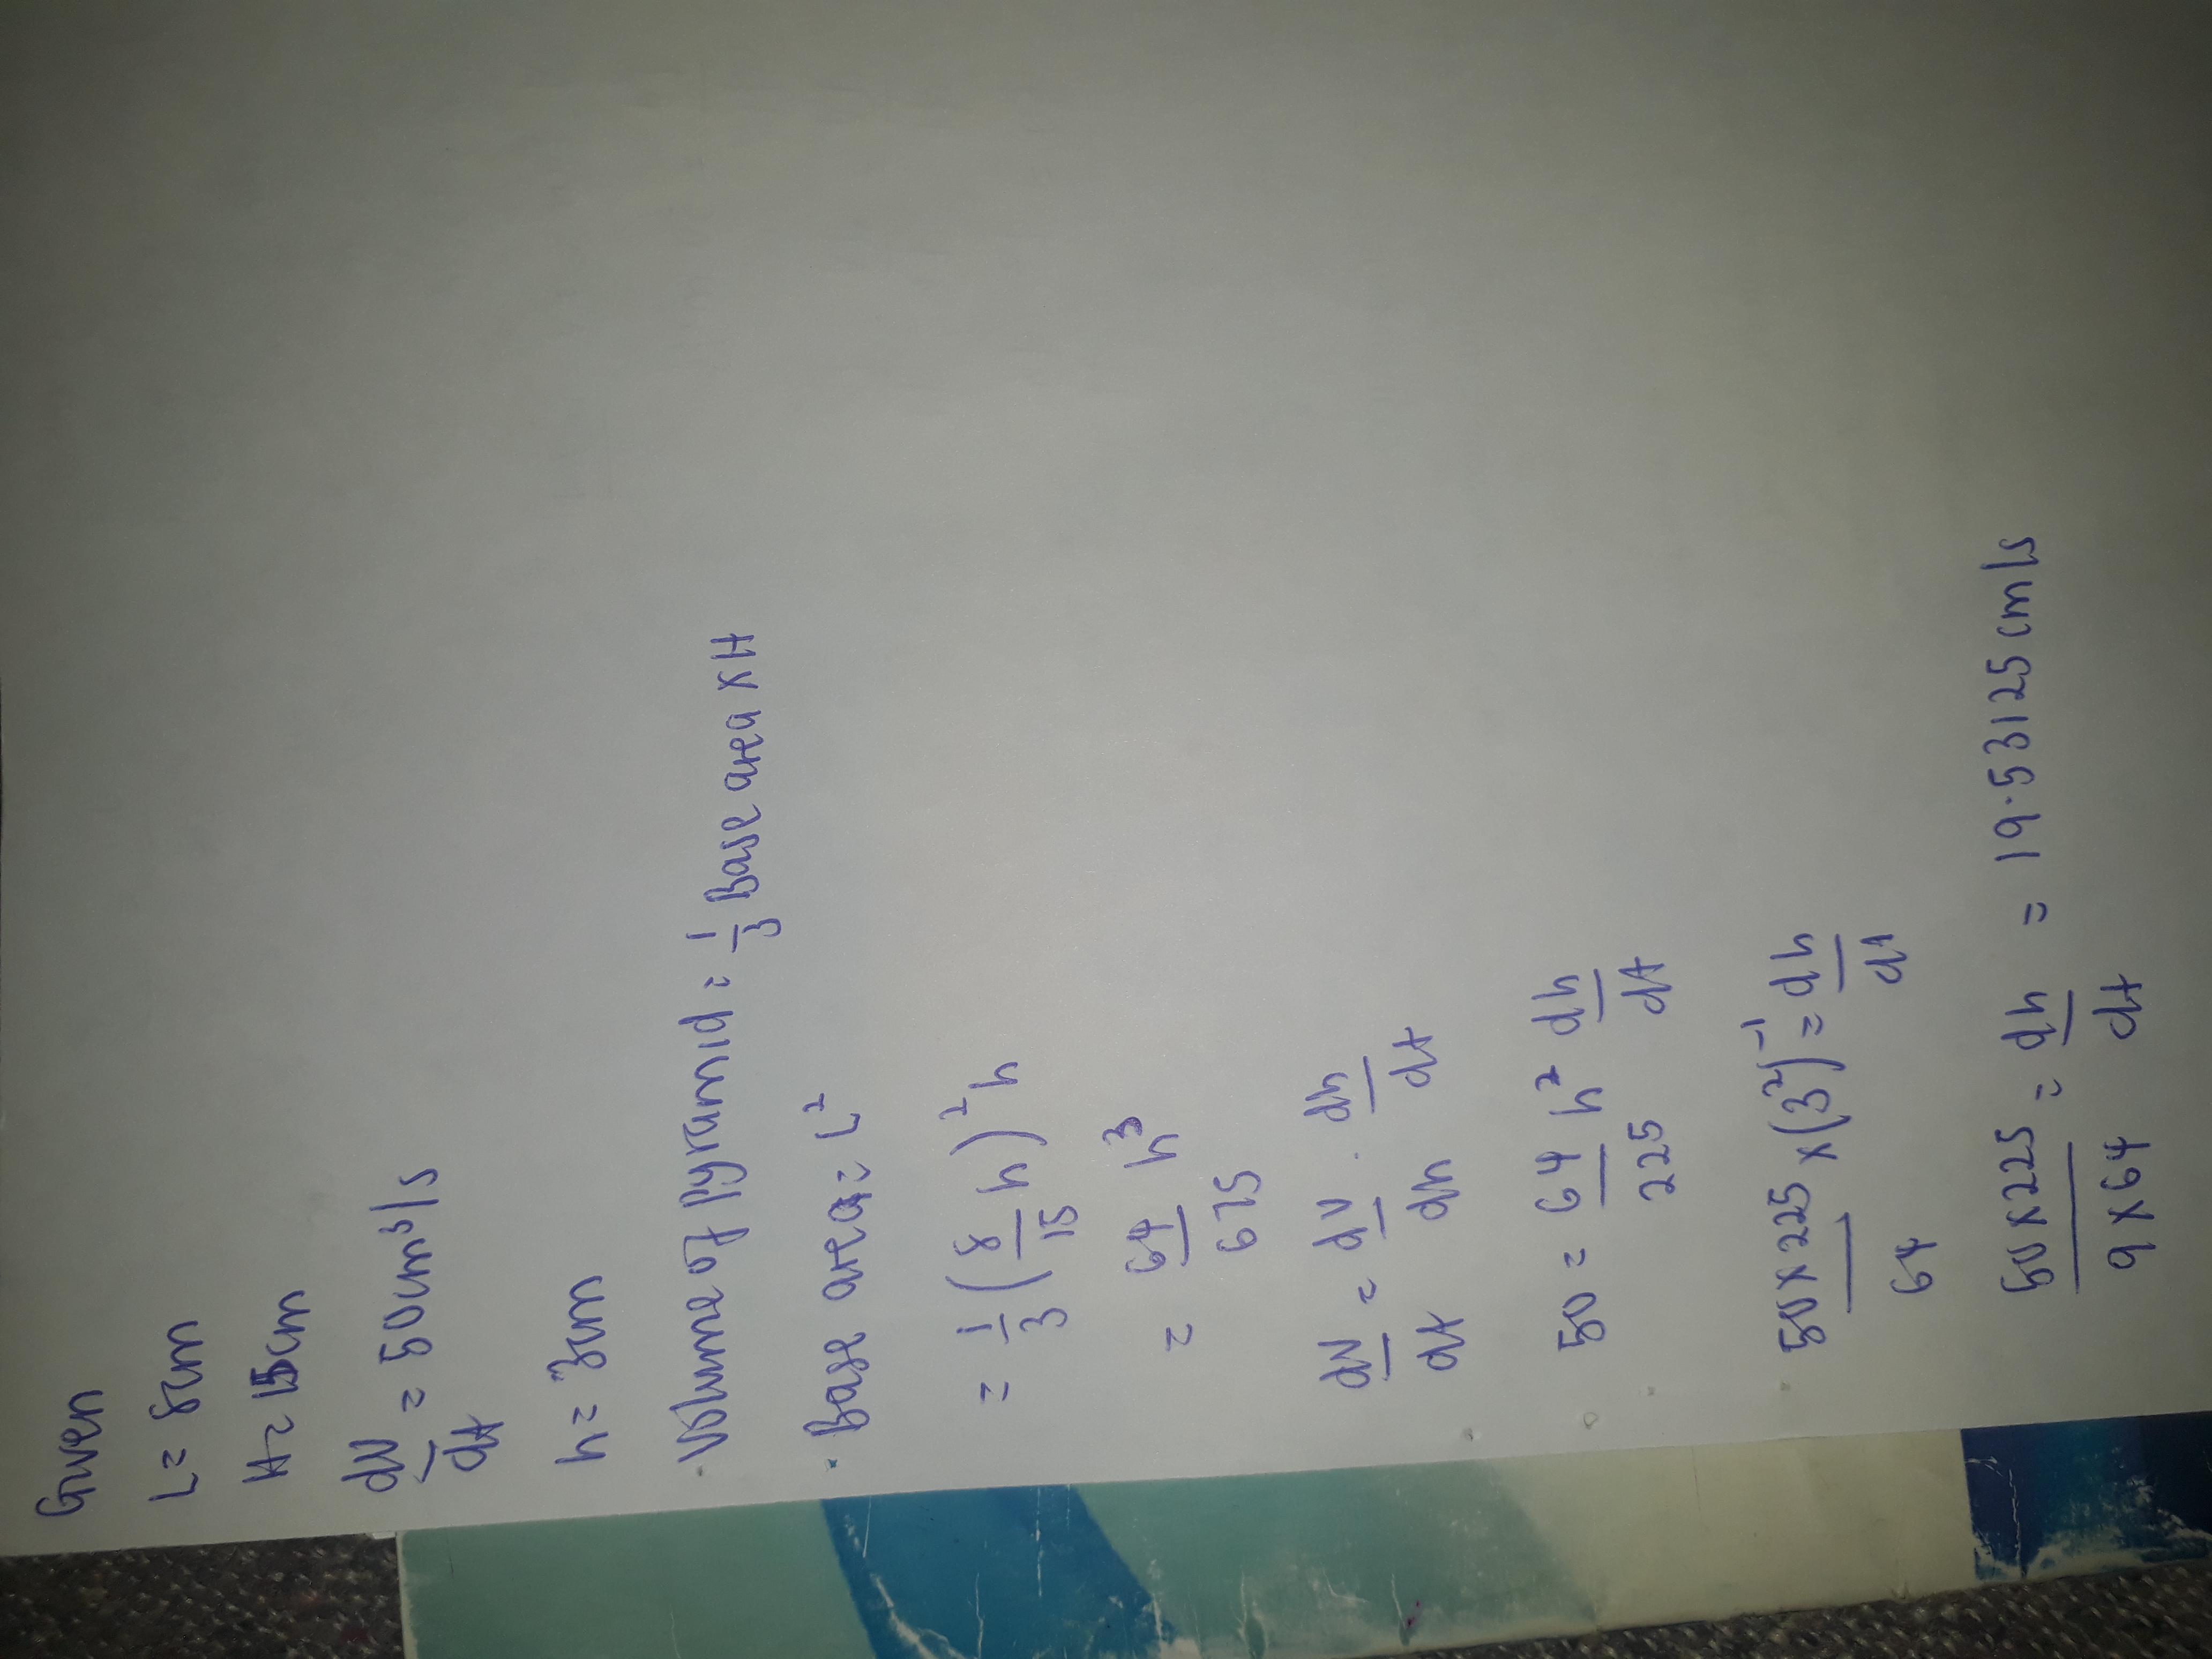 Given
L = 8cm
H = 15cm
dV/dt = 50cm³/s
h = 3cm
Volume of pyramid = 1/3 Base area x H
Base area = L²
= 1/3 (8/15 h)² h
= 64/675 h³
dV/dt = dV/dh . dh/dt
50 = 64/225 h² dh/dt
50 x 225/64 x (3²)⁻¹ = dh/dt
50 x 225/9 x 64 = dh/dt = 19.53125 cm/s